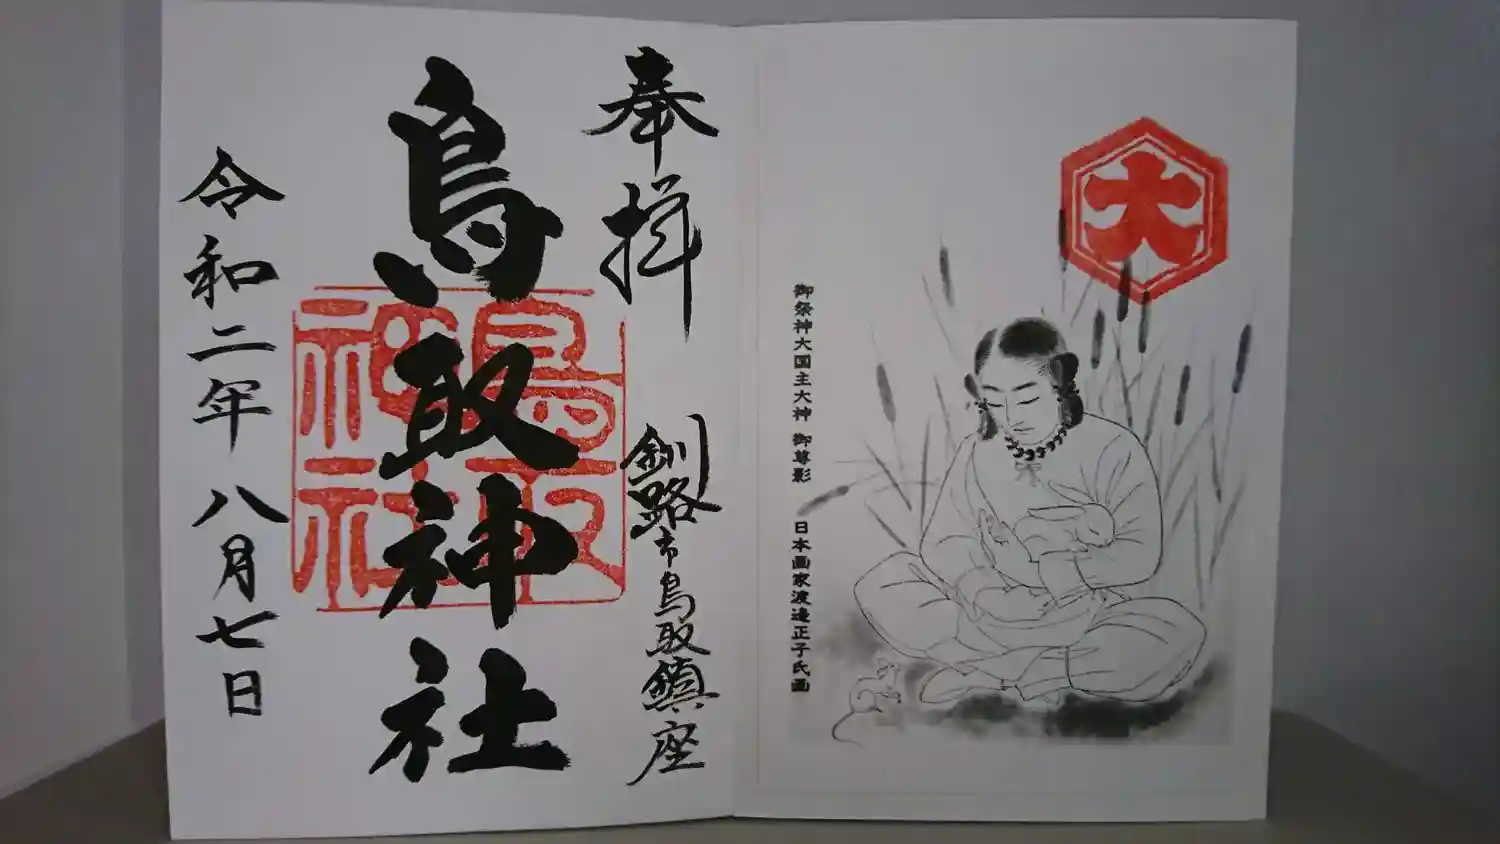 大
御祭神大国主大神 御尊影 日本画家渡邊正子氏画
奉拝
釧路市鳥取鎮座
鳥取神社
鳥取
神社
令和二年八月七日